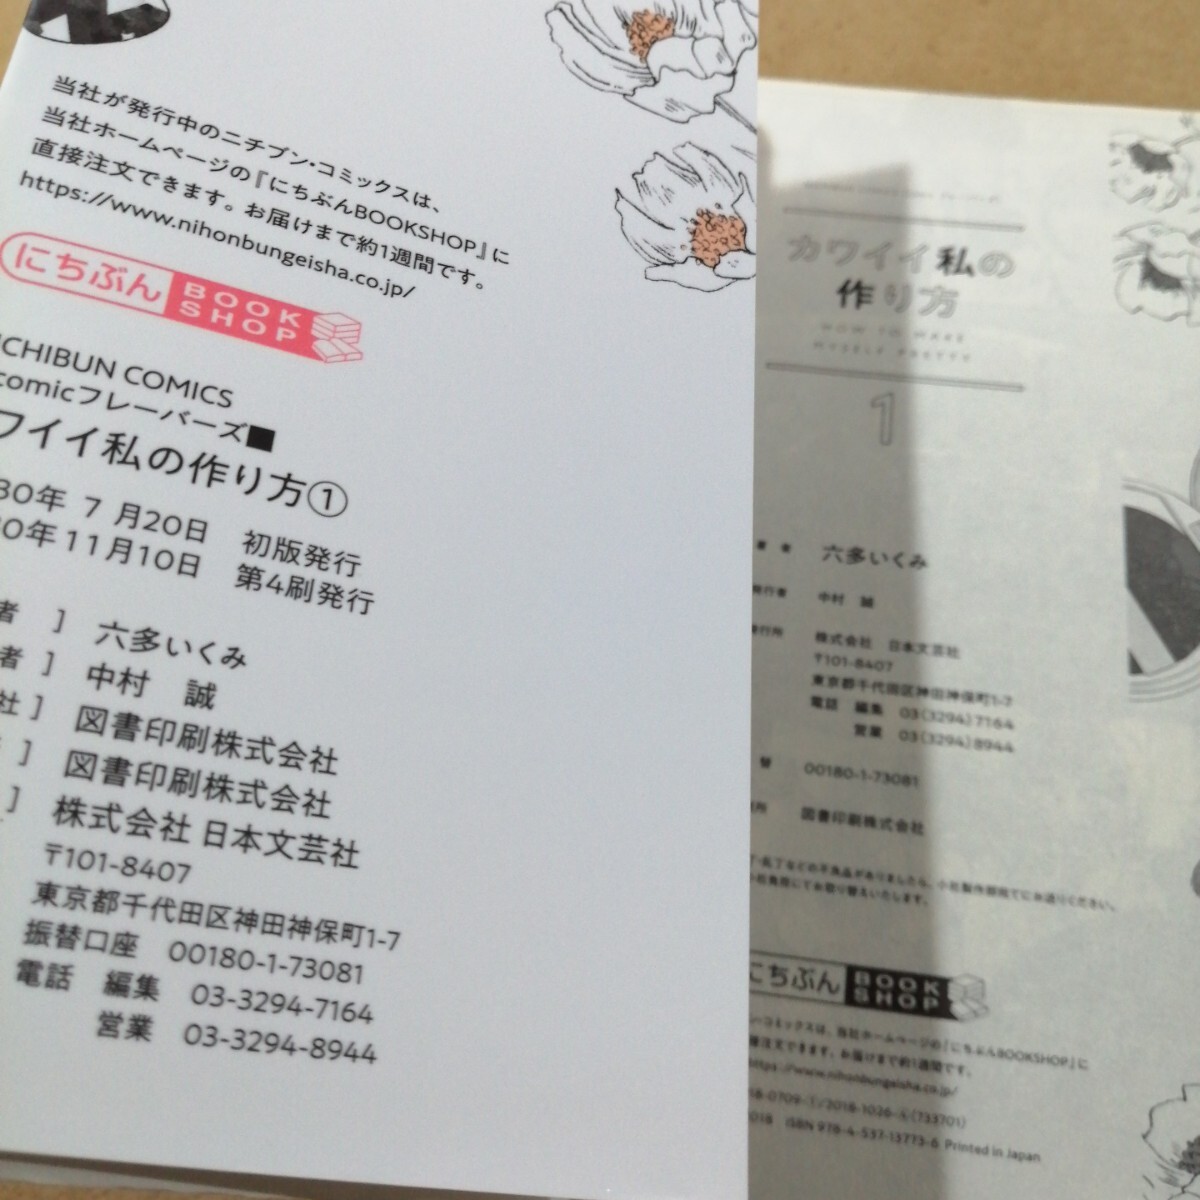 当社が発行中のニチブン・コミックスは、
当社ホームページの『にちぶんBOOKSHOP』に
直接注文できます。お届けまで約1週間です。
https://www.nihonbungeisha.co.jp/
にちぶん BOOK SHOP
ICHIBUN COMICS
comicフレーバーズ■
ワイイ私の作り方①
30年 7月20日 初版発行
0年11月10日 第4刷発行
者 ] 六多いくみ
者 ] 中村 誠
社 ] 図書印刷株式会社
] 図書印刷株式会社
] 株式会社 日本文芸社
〒101-8407
東京都千代田区神田神保町1-7
振替口座 00180-1-73081
電話 編集 03-3294-7164
営業 03-3294-8944
カワイイ私の
作り方
HOW TO MAKE
MYSELF PRETTY
1
著者 六多いくみ
発行者 中村 誠
発行所 株式会社 日本文芸社
〒101-8407
東京都千代田区神田神保町1-7
電話 編集 03(3294)7164
営業 03(3294)8944
替 00180-1-73081
所 図書印刷株式会社
丁・乱丁などの不良品がありましたら、小社製作部宛てにお送りください。
小社負担にてお取り替えいたします。
にちぶん BOOK SHOP
コミックスは、当社ホームページの『にちぶんBOOKSHOP』に
接注文できます。お届けまで約1週間です。
https://www.nihonbungeisha.co.jp/
18-0709-①/2018-1026-④(733701)
2018 ISBN 978-4-537-13773-6 Printed in Japan